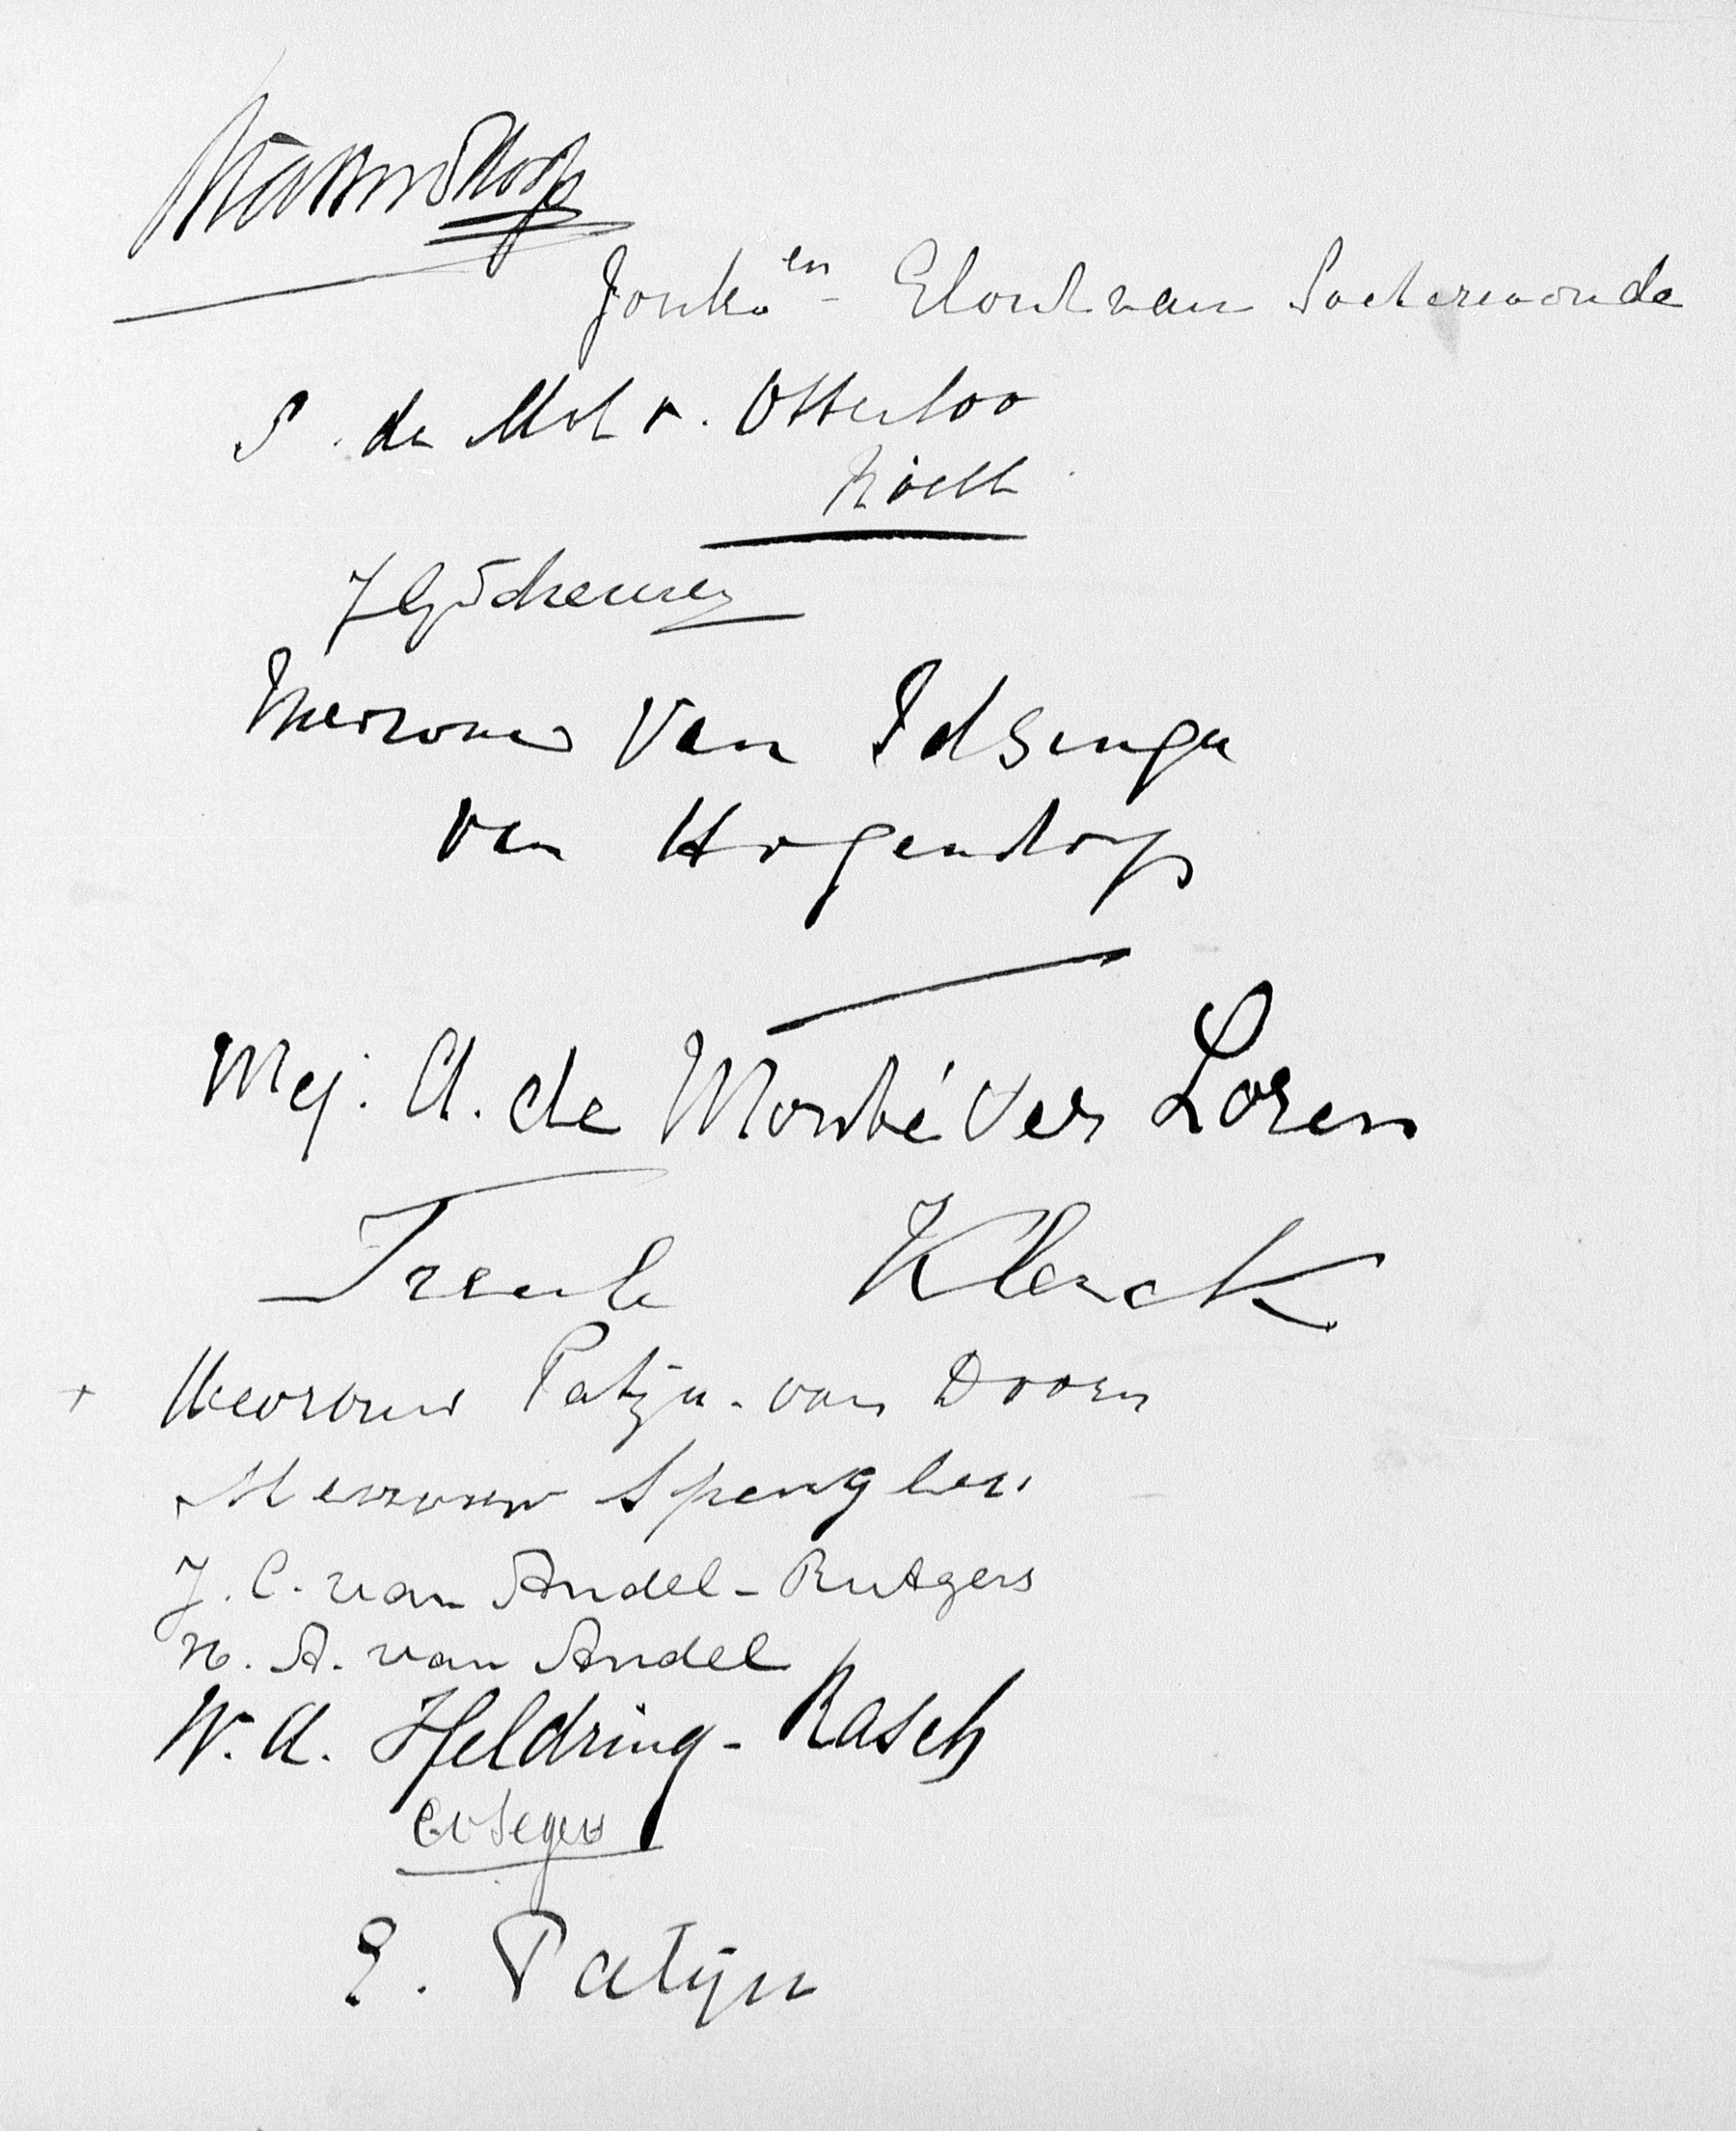 Jonkvr en - Elout van Soeterwoude
S. de Mol v. Otterloo
Röell
Mevrouw Van Idsinga
van Hogendorp
Mej. A. de Monté ver Loren
Treub Klerck
+ Mevrouw Patijn - van Doorn
Mevrouw Spengler
J. C. van Andel - Rutgers
H. A. van Andel
W. A. Heldring - Rasch
E. Patijn